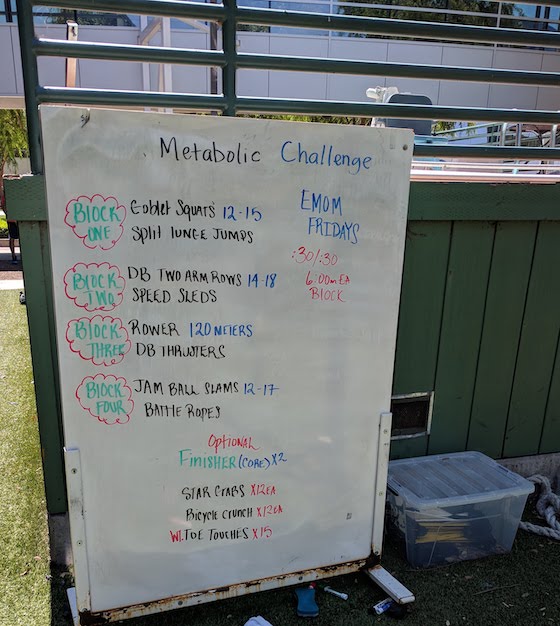 Metabolic Challenge
EMOM
FRIDAYS
:30/:30
6:00m EA
BLOCK
BLOCK ONE
Goblet Squats 12-15
Split lunge Jumps
BLOCK TWO
DB TWO ARM ROWS 14-18
SPEED SLEDS
BLOCK THREE
ROWER 120 METERS
DB THRUSTERS
BLOCK FOUR
JAM BALL SLAMS 12-17
BATTLE ROPES
Optional
Finisher (CORE) X2
STAR CRABS X12EA
Bicycle CRUNCH X12EA
WT. TOE TOUCHES X15